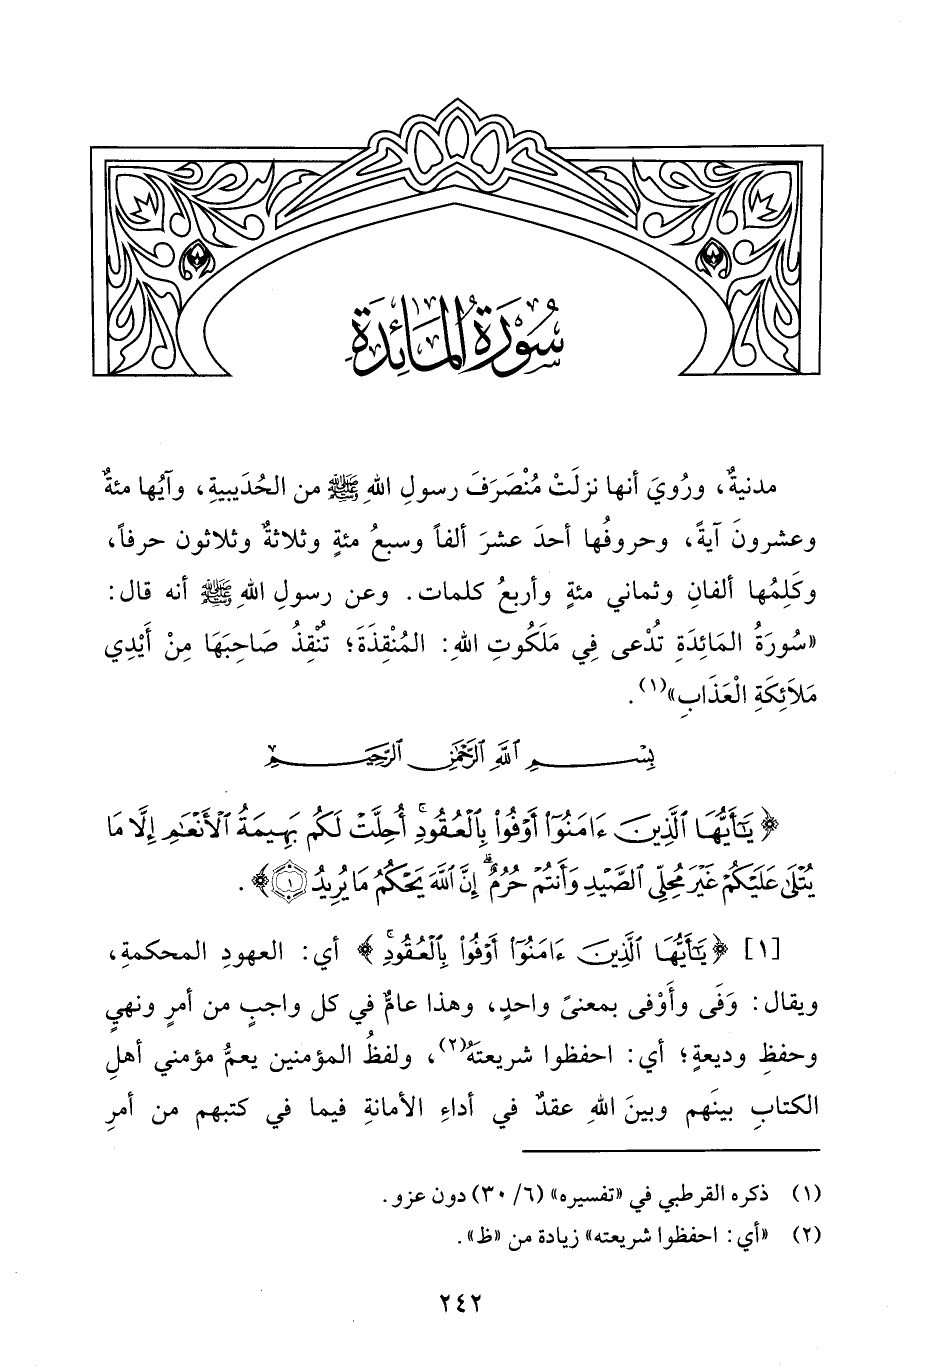 سُورَةُ المَائِدَةِ
مدنيةٌ، ورُويَ أنها نزلَتْ مُنْصَرَفَ رسولِ اللهِ ﷺ من الحُدَيبيةِ، وآيُها مئةٌ
وعشرونَ آيةً، وحروفُها أحدَ عشرَ ألفاً وسبعُ مئةٍ وثلاثةٌ وثلاثون حرفاً،
وكَلِمُها ألفانِ وثماني مئةٍ وأربعُ كلمات. وعن رسولِ اللهِ ﷺ أنه قال:
«سُورَةُ المَائِدَةِ تُدْعى فِي مَلَكُوتِ اللهِ: المُنْقِذَةَ؛ تُنْقِذُ صَاحِبَهَا مِنْ أَيْدِي
مَلاَئِكَةِ الْعَذَابِ»(١).
بِسْمِ ٱللَّهِ ٱلرَّحْمَٰنِ ٱلرَّحِيمِ
﴿يَٰٓأَيُّهَا ٱلَّذِينَ ءَامَنُوٓا۟ أَوْفُوا۟ بِٱلْعُقُودِ ۚ أُحِلَّتْ لَكُم بَهِيمَةُ ٱلْأَنْعَٰمِ إِلَّا مَا
يُتْلَىٰ عَلَيْكُمْ غَيْرَ مُحِلِّى ٱلصَّيْدِ وَأَنتُمْ حُرُمٌ ۗ إِنَّ ٱللَّهَ يَحْكُمُ مَا يُرِيدُ ۝١﴾.
[١] ﴿يَٰٓأَيُّهَا ٱلَّذِينَ ءَامَنُوٓا۟ أَوْفُوا۟ بِٱلْعُقُودِ ۚ﴾ أي: العهودِ المحكمةِ،
ويقال: وَفَى وأَوْفى بمعنىً واحدٍ، وهذا عامٌّ في كل واجبٍ من أمرٍ ونهيٍ
وحفظِ وديعةٍ؛ أي: احفظوا شريعتَهُ(٢)، ولفظُ المؤمنين يعمُّ مؤمني أهلِ
الكتابِ بينَهم وبينَ اللهِ عقدٌ في أداءِ الأمانةِ فيما في كتبهم من أمرِ
(١) ذكره القرطبي في «تفسيره» (٦/ ٣٠) دون عزو.
(٢) «أي: احفظوا شريعته» زيادة من «ظ».
٢٤٢